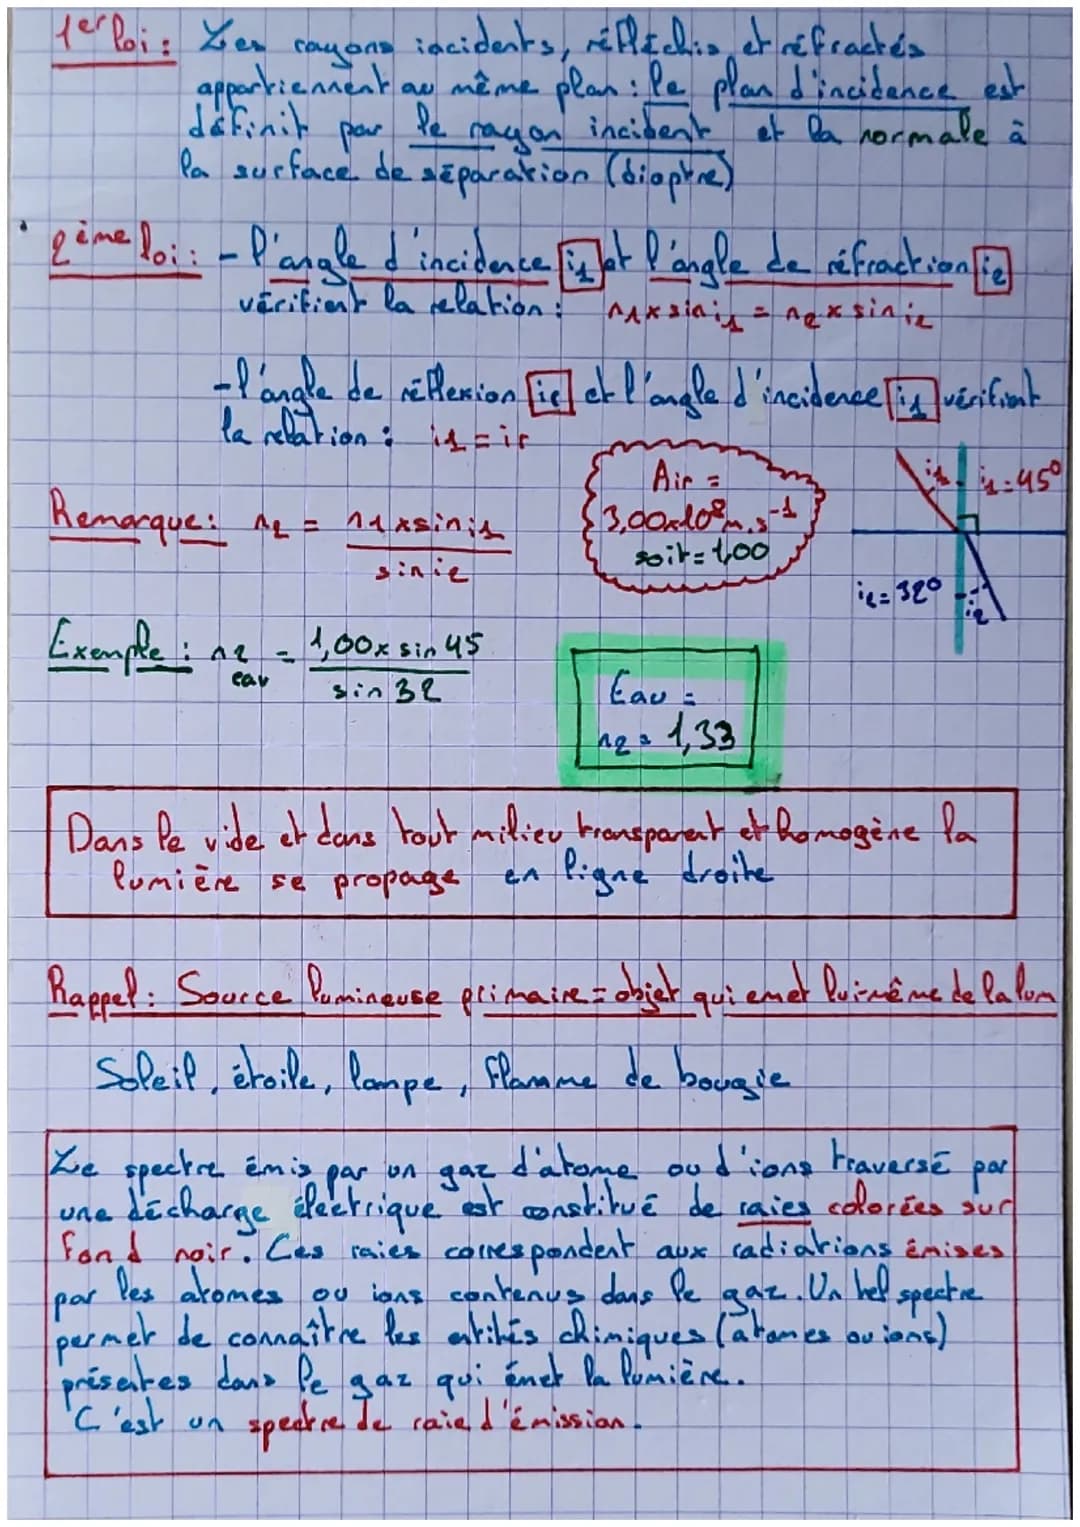 1er loi : Les rayons incidents, réfléchis et réfractés
appartiennent au même plan : le plan d'incidence est
définit par le rayon incident et la normale à
la surface de séparation (dioptre)
2ème loi : - l'angle d'incidence i1 et l'angle de réfraction i2
vérifient la relation : n1 x sin i1 = n2 x sin i2
- l'angle de réflexion ir et l'angle d'incidence i1 vérifient
la relation : i1 = ir
Air =
3,00x10^8 m.s^-1
soit = 1,00
i1 i1 = 45°
i2 = 32° i2
Remarque : n2 = n1 x sin i1
sin i2
Exemple : n2 eau = 1,00 x sin 45
sin 32
Eau =
n2 = 1,33
Dans le vide et dans tout milieu transparent et homogène la
lumière se propage en ligne droite
Rappel : Source lumineuse primaire = objet qui emet lui-même de la lum
Soleil, étoile, lampe, flamme de bougie
Le spectre émis par un gaz d'atome ou d'ions traversé par
une décharge électrique est constitué de raies colorées sur
fond noir. Ces raies correspondent aux radiations émises
par les atomes ou ions contenus dans le gaz. Un tel spectre
permet de connaître les entités chimiques (atomes ou ions)
présentes dans le gaz qui émet la lumière.
C'est un spectre de raie d'émission.